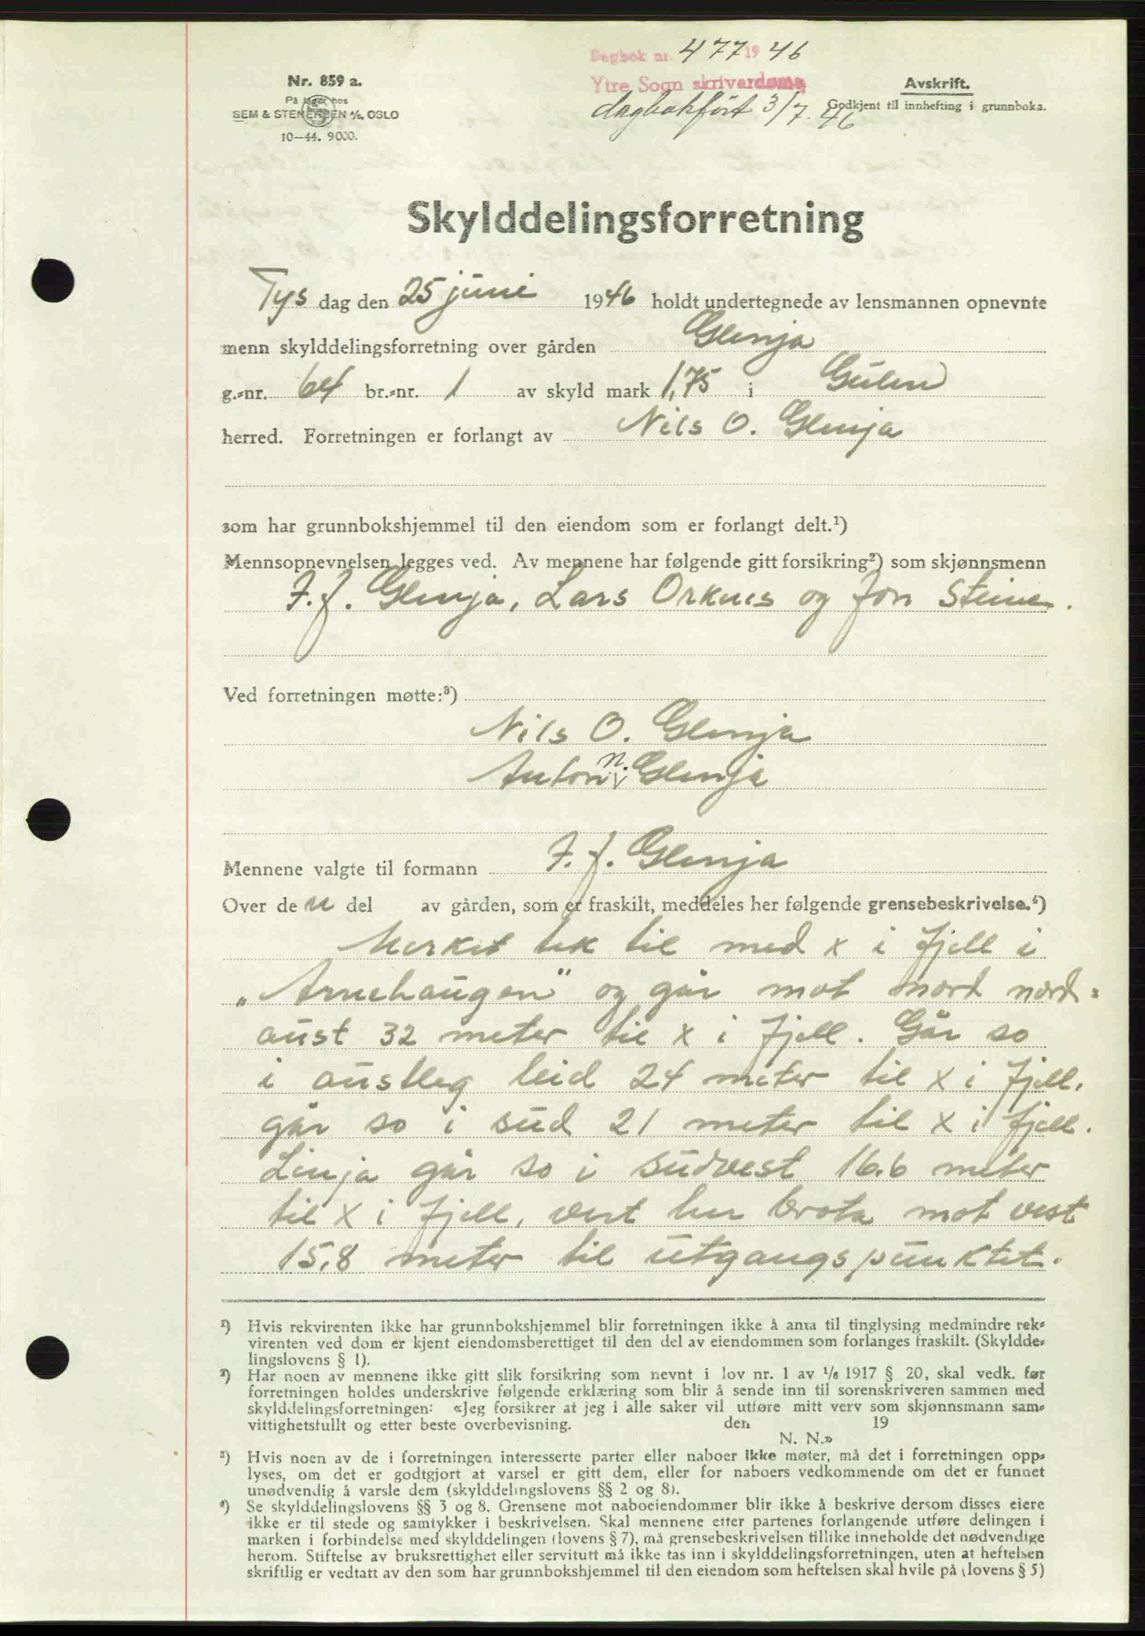 Dagbok nr. 477 1946
Ytre Sogn skrivardøme
dagbokført 3/7. 46
Nr. 859 a.
På lager hos
SEM & STENERSEN A/S, OSLO
10-44. 9000.
Avskrift.
Godkjent til innhefting i grunnboka.
Skylddelingsforretning
Tys dag den 25 juni 1946 holdt undertegnede av lensmannen opnevnte
menn skylddelingsforretning over gården Glenja
g.-nr. 64 br.-nr. 1 av skyld mark 1,75 i Gulen
herred. Forretningen er forlangt av Nils O. Glenja
som har grunnbokshjemmel til den eiendom som er forlangt delt.¹)
Mennsopnevnelsen legges ved. Av mennene har følgende gitt forsikring²) som skjønnsmenn
J. J. Glenja, Lars Orknes og Jon Steine.
Ved forretningen møtte:³)
Nils O. Glenja
Anton N. Glenja
Mennene valgte til formann J. J. Glenja
Over de n del av gården, som er fraskilt, meddeles her følgende grensebeskrivelse.⁴)
Merket tek til med x i fjell i
„Arnehaugen" og går mot nord nord-
aust 32 meter til x i fjell. Går so
i austleg leid 24 meter til x i fjell,
går so i sud 21 meter til x i fjell.
Linja går so i sudvest 16.6 meter
til x i fjell, vert her brota mot vest
15,8 meter til utgangspunktet.
¹) Hvis rekvirenten ikke har grunnbokshjemmel blir forretningen ikke å anta til tinglysing medmindre rek-
virenten ved dom er kjent eiendomsberettiget til den del av eiendommen som forlanges fraskilt. (Skyldde-
lingslovens § 1).
²) Har noen av mennene ikke gitt slik forsikring som nevnt i lov nr. 1 av 1/6 1917 § 20, skal vedk. før
forretningen holdes underskrive følgende erklæring som blir å sende inn til sorenskriveren sammen med
skylddelingsforretningen: «Jeg forsikrer at jeg i alle saker vil utføre mitt verv som skjønnsmann sam-
vittighetsfullt og etter beste overbevisning. den 19
N. N.»
³) Hvis noen av de i forretningen interesserte parter eller naboer ikke møter, må det i forretningen opp-
lyses, om det er godtgjort at varsel er gitt dem, eller for naboers vedkommende om det er funnet
unødvendig å varsle dem (skylddelingslovens §§ 2 og 8).
⁴) Se skylddelingslovens §§ 3 og 8. Grensene mot naboeiendommer blir ikke å beskrive dersom disses eiere
ikke er til stede og samtykker i beskrivelsen. Skal mennene etter partenes forlangende utføre delingen i
marken i forbindelse med skylddelingen (lovens § 7), må grensebeskrivelsen tillike inneholde det nødvendige
herom. Stiftelse av bruksrettighet eller servitutt må ikke tas inn i skylddelingsforretningen, uten at heftelsen
skriftlig er vedtatt av den som har grunnbokshjemmel til den eiendom som heftelsen skal hvile på (lovens § 5)